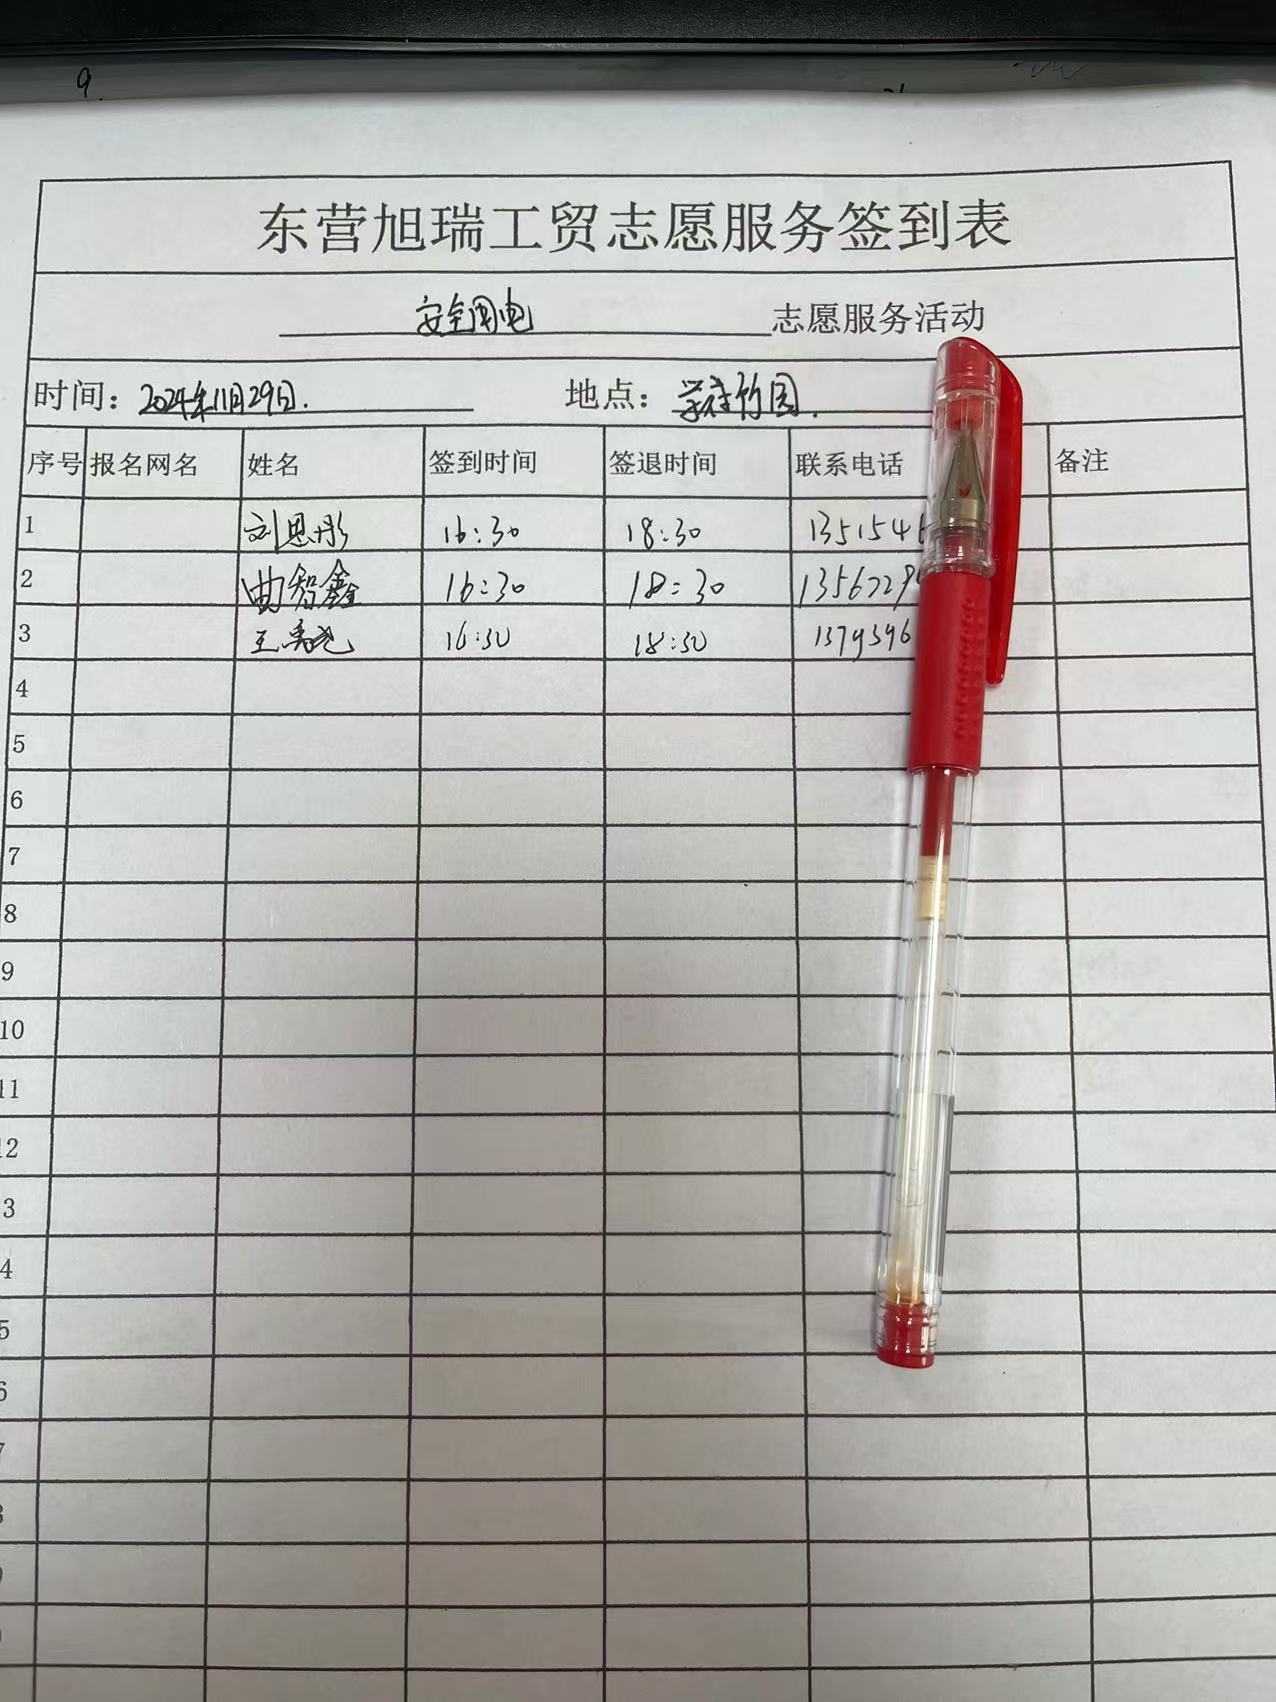 9.
东营旭瑞工贸志愿服务签到表
安全用电 志愿服务活动
时间：2024年11月29日. 地点：学府竹园.
序号 报名网名 姓名 签到时间 签退时间 联系电话 备注
1 刘思彤 16:30 18:30 135154
2 曲智鑫 16:30 18:30 1356729
3 王禹尧 16:30 18:30 1379396
4
5
6
7
8
9
10
11
12
3
4
5
6
7